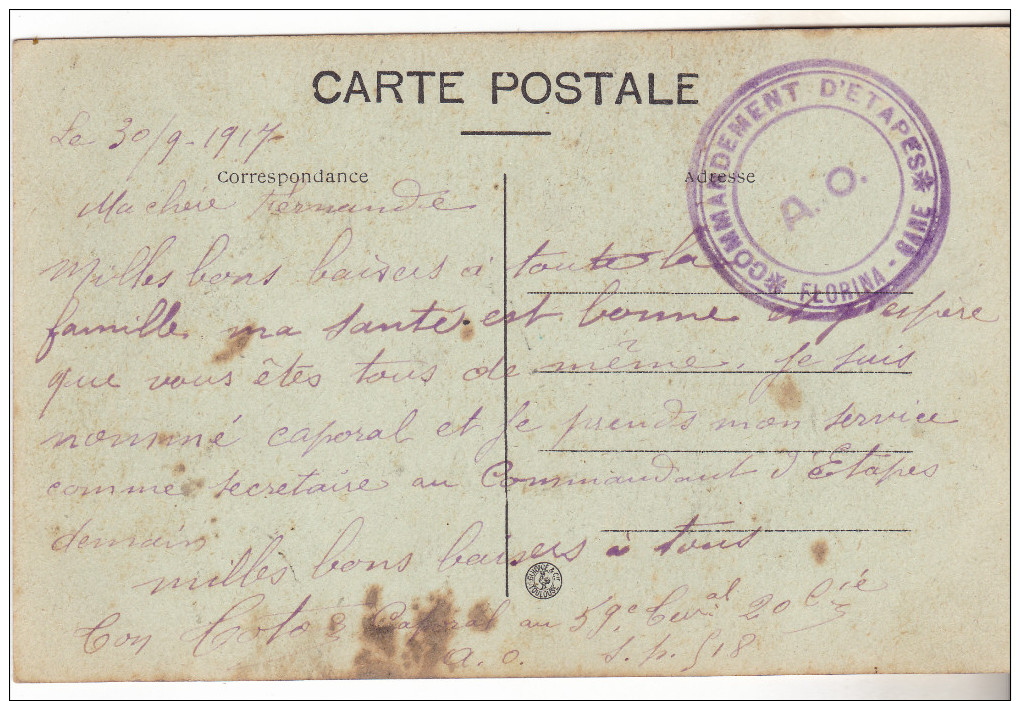 CARTE POSTALE
Le 30/9-1917
Correspondance
Adresse
✻COMMANDEMENT D'ETAPES✻
A. O.
FLORINA - GARE
Ma chérie Fernande
Milles bons baisers à toute la
famille ma santé est bonne et j'espère
que vous êtes tous de même. Je suis
nommé caporal et je prends mon service
comme secretaire au Commandant d'Etapes
demain
milles bons baisers à tous
Ton Toto Caporal au 59e 20 Cie
A. O. S. p. 518
& Cie TOULOUSE